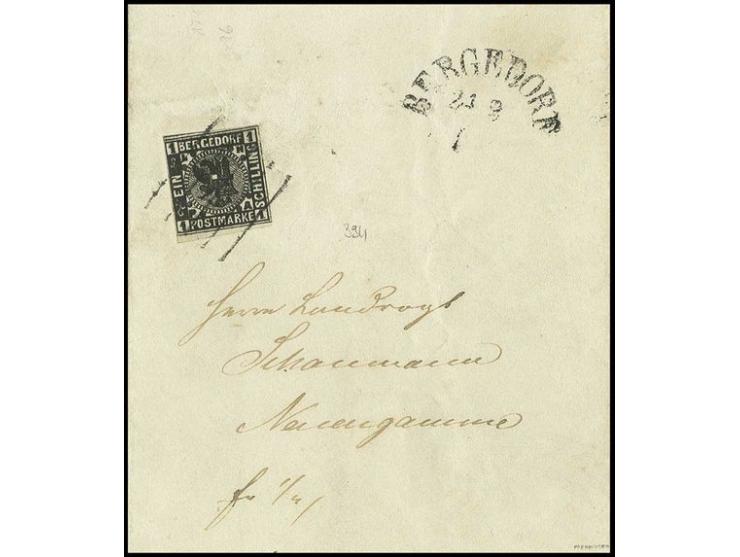 BERGEDORF
23 8
1
1 BERGEDORF 1
EIN
SCHILLING
1 POSTMARKE 1
394
Herrn Landvogt
Schaumann
Neuengamme
fr